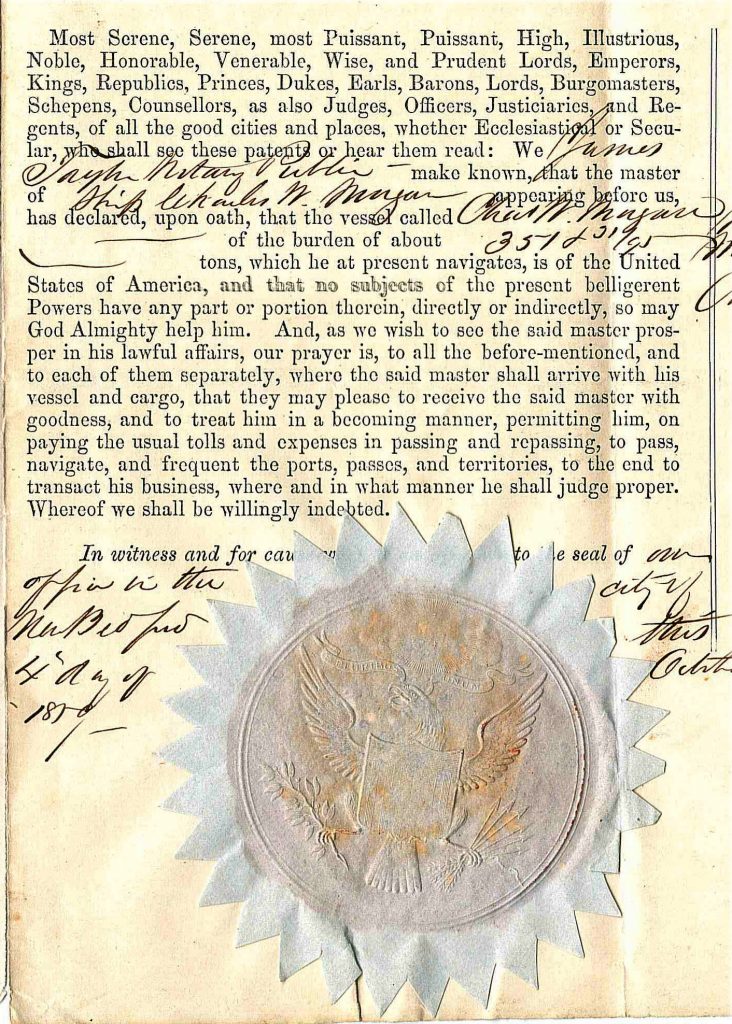 Most Serene, Serene, most Puissant, Puissant, High, Illustrious,
Noble, Honorable, Venerable, Wise, and Prudent Lords, Emperors,
Kings, Republics, Princes, Dukes, Earls, Barons, Lords, Burgomasters,
Schepens, Counsellors, as also Judges, Officers, Justiciaries, and Re-
gents, of all the good cities and places, whether Ecclesiastical or Secu-
lar, who shall see these patents or hear them read: We James
Taylor Notary Public make known, that the master
of Ship Charles W. Morgan appearing before us,
has declared, upon oath, that the vessel called Chas W. Morgan
of the burden of about 351 & 31/95
tons, which he at present navigates, is of the United
States of America, and that no subjects of the present belligerent
Powers have any part or portion therein, directly or indirectly, so may
God Almighty help him. And, as we wish to see the said master pros-
per in his lawful affairs, our prayer is, to all the before-mentioned, and
to each of them separately, where the said master shall arrive with his
vessel and cargo, that they may please to receive the said master with
goodness, and to treat him in a becoming manner, permitting him, on
paying the usual tolls and expenses in passing and repassing, to pass,
navigate, and frequent the ports, passes, and territories, to the end to
transact his business, where and in what manner he shall judge proper.
Whereof we shall be willingly indebted.
In witness and for cau to e seal of our
office in the city of
New Bedford this
4th day of Octobe